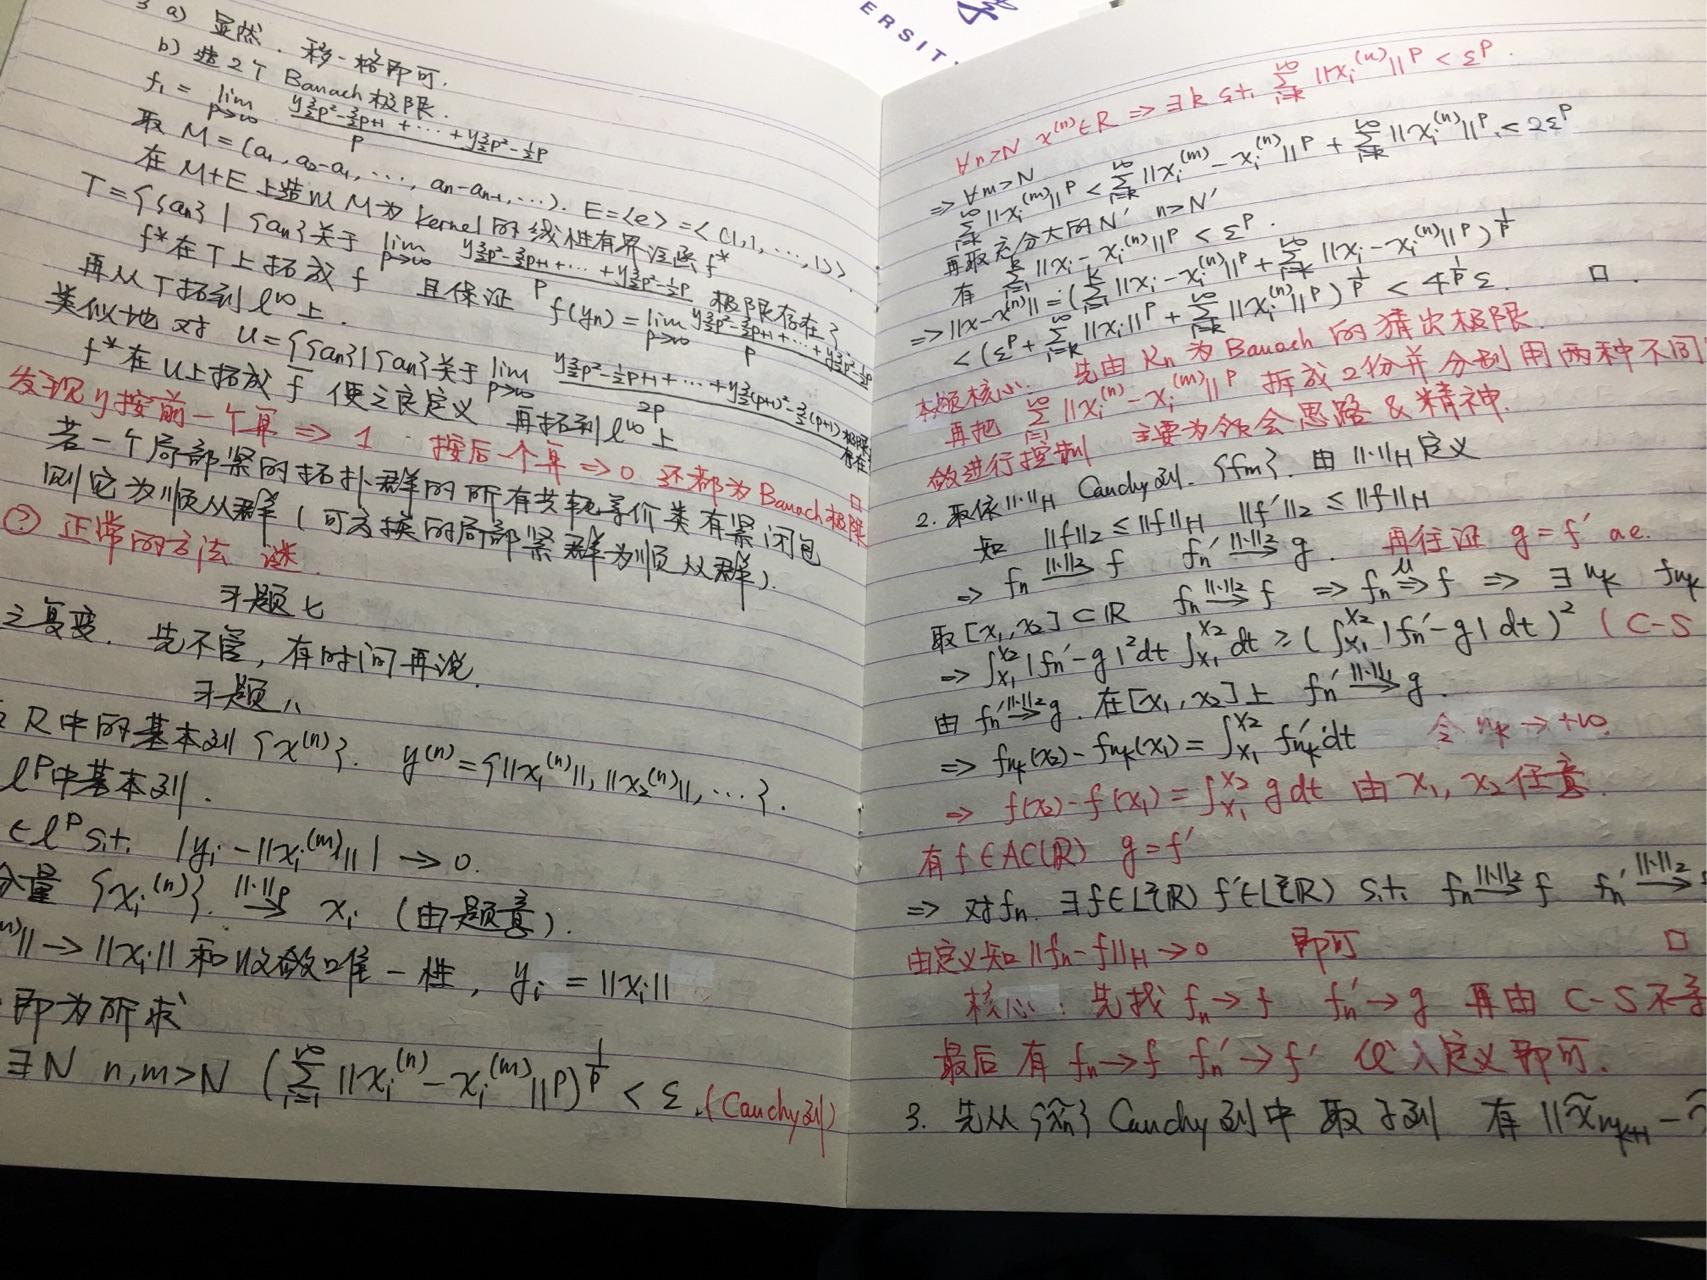 ERSIT
3 a) 显然. 移一格即可.
b) 造2个Banach极限.
f₁ = lim_{p→∞} (y_{3/2p²-3/2p+1} + ⋯ + y_{3/2p²-1/2p}) / p
取 M = (a₁, a₂-a₁, …, aₙ-aₙ₋₁, …). E=<e> = <(1,1,…,1)>
在 M+E 上造以 M 为 kernel 的线性有界泛函 f*
T = {{aₙ} | {aₙ}关于 lim_{p→∞} (y_{3/2p²-3/2p+1} + ⋯ + y_{3/2p²-1/2p}) / p 极限存在}
f* 在 T 上拓成 f 且保证 f(yₙ) = lim_{p→∞} (y_{3/2p²-3/2p+1} + ⋯ + y_{3/2p²-1/2p}) / p
再从 T 拓到 l^∞ 上.
类似地 对 U = {{aₙ} | {aₙ}关于 lim_{p→∞} (y_{3/2p²-1/2p+1} + ⋯ + y_{3/2(p+1)²-3/2(p+1)}) / 2p 极限存在
f* 在 U 上拓成 f̄ 使之良定义 再拓到 l^∞ 上
发现 y 按前一个算 ⇒ 1 按后一个算 ⇒ 0 还都为 Banach 极限 □
若一个局部紧的拓扑群的所有共轭等价类有紧闭包
则它为顺从群 (可交换的局部紧群为顺从群).
? 正常的方法 谜.
习题七
之复变. 先不管, 有时间再说.
习题八
R中的基本列 {x^(n)}. y^(n) = {||x₁^(n)||, ||x₂^(n)||, …}.
l^p 中基本列.
∈ l^p s.t. |yᵢ - ||xᵢ^(m)|| | → 0.
分量 {xᵢ^(n)} →^{||·||p} xᵢ (由题意).
|| → ||xᵢ|| 和收敛唯一性, yᵢ = ||xᵢ||
即为所求
∃N n,m>N (∑_{i=1}^∞ ||xᵢ^(n) - xᵢ^(m)||^p)^{1/p} < ε. (Cauchy列)
∀n>N x^(n)∈R ⇒ ∃k s.t. ∑_{i=k}^∞ ||xᵢ^(n)||^p < ε^p.
⇒ ∀m>N
∑_{i=k}^∞ ||xᵢ^(m)||^p < ∑_{i=k}^∞ ||xᵢ^(m) - xᵢ^(n)||^p + ∑_{i=k}^∞ ||xᵢ^(n)||^p < 2ε^p
再取充分大的 N' n>N'
有 ∑_{i=1}^k ||xᵢ - xᵢ^(n)||^p < ε^p.
⇒ ||x-x^(n)|| = (∑_{i=1}^k ||xᵢ - xᵢ^(n)||^p + ∑_{i=k}^∞ ||xᵢ - xᵢ^(n)||^p)^{1/p}
< (ε^p + ∑_{i=k}^∞ ||xᵢ||^p + ∑_{i=k}^∞ ||xᵢ^(n)||^p)^{1/p} < 4^{1/p} ε. □.
本题核心: 先由 Rₙ 为 Banach 的猜出极限.
再把 ∑_{i=1}^∞ ||xᵢ^(n) - xᵢ^(m)||^p 拆成2份并分别用两种不同
敛进行控制 主要为领会思路 & 精神.
2. 取依 ||·||_H Cauchy列. {fₘ}. 由 ||·||_H 定义
知 ||f||₂ ≤ ||f||_H ||f'||₂ ≤ ||f||_H
⇒ fₙ →^{||·||₂} f fₙ' →^{||·||₂} g. 再往证 g = f' ae.
取 [x₁, x₂] ⊂ ℝ fₙ →^{||·||₂} f ⇒ fₙ ⇒^μ f ⇒ ∃ n_k f_{n_k}
⇒ ∫_{x₁}^{x₂} |fₙ' - g|² dt ∫_{x₁}^{x₂} dt ≥ (∫_{x₁}^{x₂} |fₙ' - g| dt)² (C-S
由 fₙ' →^{||·||₂} g. 在 [x₁, x₂] 上 fₙ' →^{||·||₁} g.
⇒ f_{n_k}(x₂) - f_{n_k}(x₁) = ∫_{x₁}^{x₂} f'_{n_k} dt 令 n_k → +∞.
⇒ f(x₂) - f(x₁) = ∫_{x₁}^{x₂} g dt 由 x₁, x₂ 任意.
有 f ∈ AC(ℝ) g = f'
⇒ 对 fₙ. ∃ f ∈ L²(ℝ) f' ∈ L²(ℝ) s.t. fₙ →^{||·||₂} f fₙ' →^{||·||₂}
由定义知 ||fₙ - f||_H → 0 即可 □
核心: 先找 fₙ → f fₙ' → g 再由 C-S 不等
最后有 fₙ → f fₙ' → f' 代入定义即可.
3. 先从 {x̃ₙ} Cauchy列中 取子列 有 ||x̃_{n_{k+1}} -